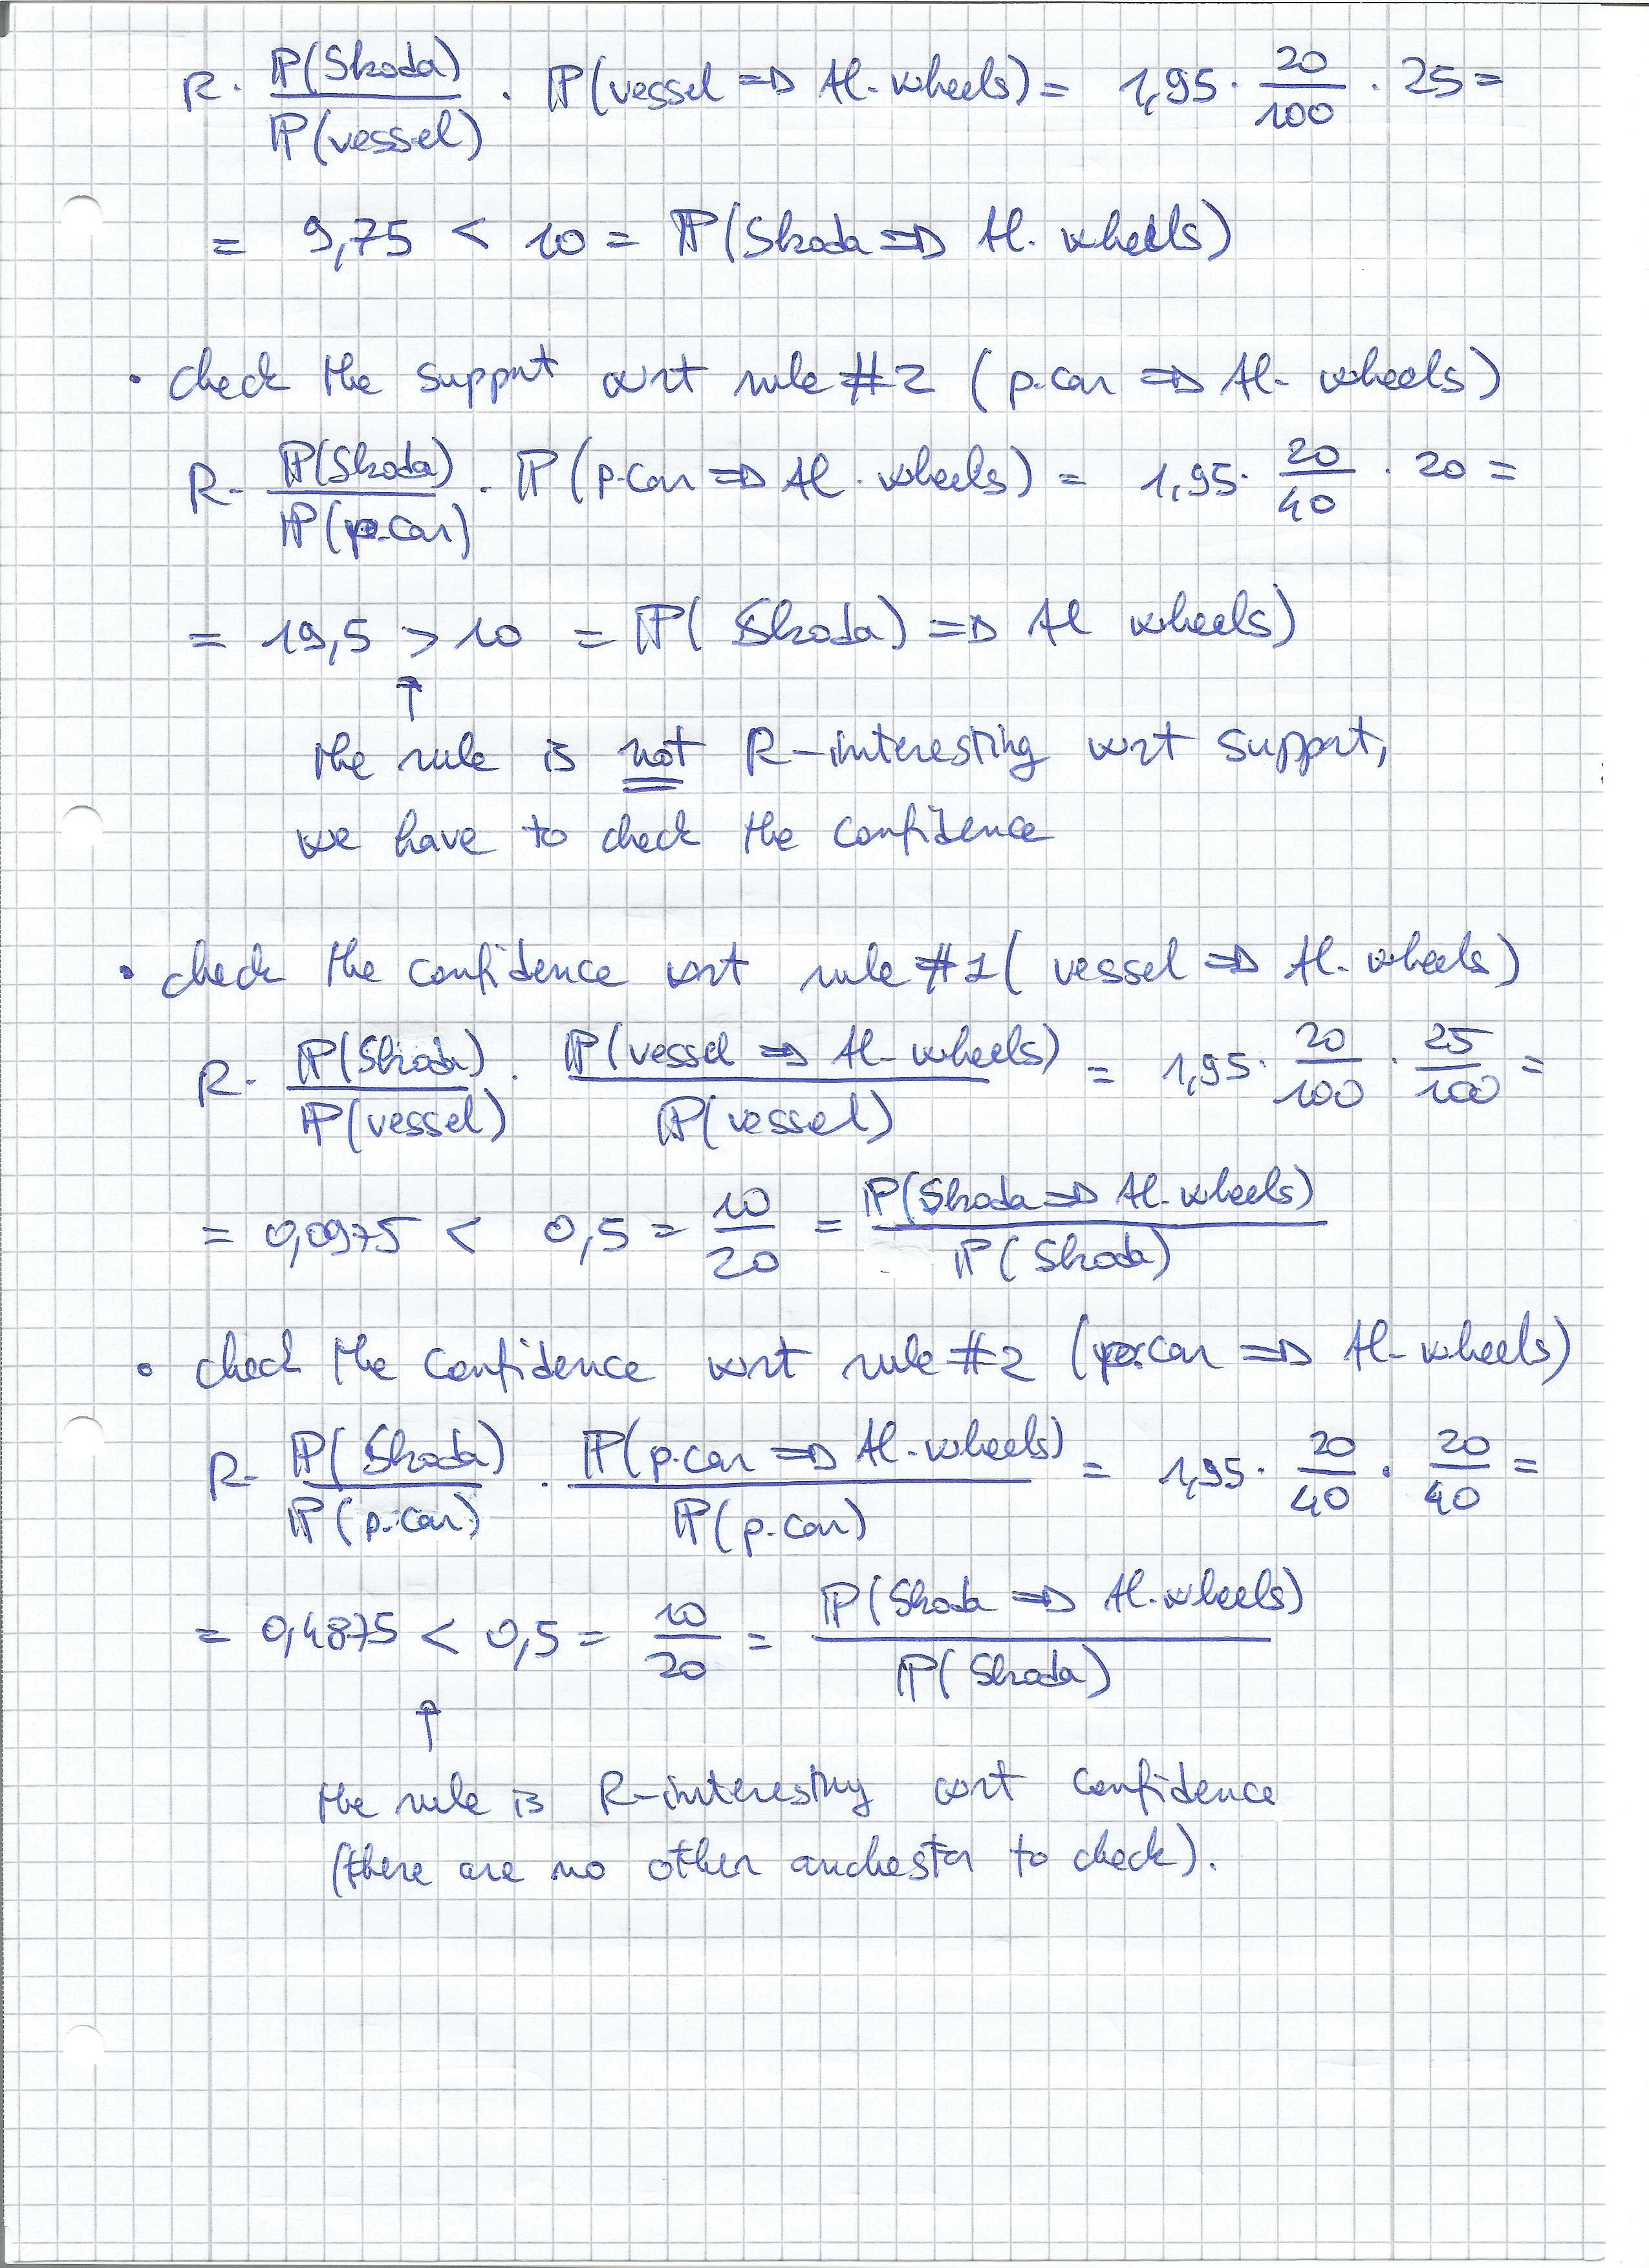 R. ℙ(Skoda)/ℙ(vessel) . ℙ(vessel ⇒ Al. wheels) = 1,95 · 20/100 · 25 =
= 9,75 < 10 = ℙ(Skoda ⇒ Al. wheels)
• check the support wrt rule #2 (p.car ⇒ Al. wheels)
R. ℙ(Skoda)/ℙ(p.car) . ℙ(p.car ⇒ Al. wheels) = 1,95 · 20/40 · 20 =
= 19,5 > 10 = ℙ( Skoda) ⇒ Al wheels)
↑
the rule is not R-interesting wrt support,
we have to check the confidence
• check the confidence wrt rule #1 (vessel ⇒ Al. wheels)
R. ℙ(Skoda)/ℙ(vessel) . ℙ(vessel ⇒ Al. wheels)/ℙ(vessel) = 1,95 · 20/100 · 25/100 =
= 0,0975 < 0,5 = 10/20 = ℙ(Skoda ⇒ Al. wheels)/ℙ(Skoda)
• check the confidence wrt rule #2 (p.car ⇒ Al. wheels)
R. ℙ(Skoda)/ℙ(p.car) . ℙ(p.car ⇒ Al. wheels)/ℙ(p.car) = 1,95 · 20/40 · 20/40 =
= 0,4875 < 0,5 = 10/20 = ℙ(Skoda ⇒ Al. wheels)/ℙ(Skoda)
↑
the rule is R-interesting wrt confidence
(there are no other anchestor to check).